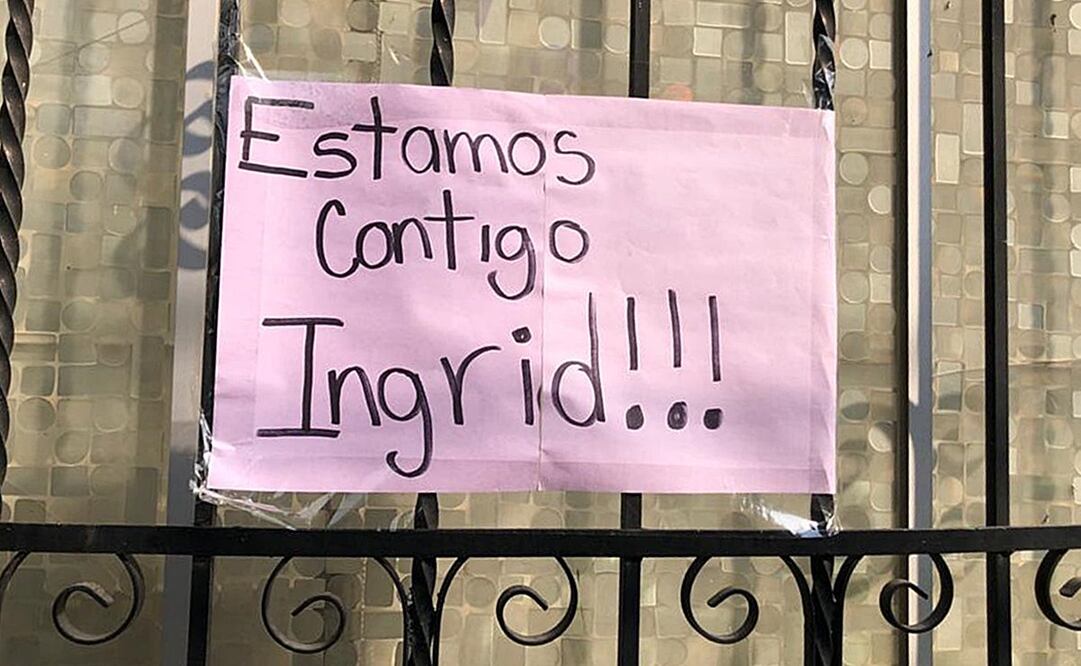 Estamos
Contigo
Ingrid!!!